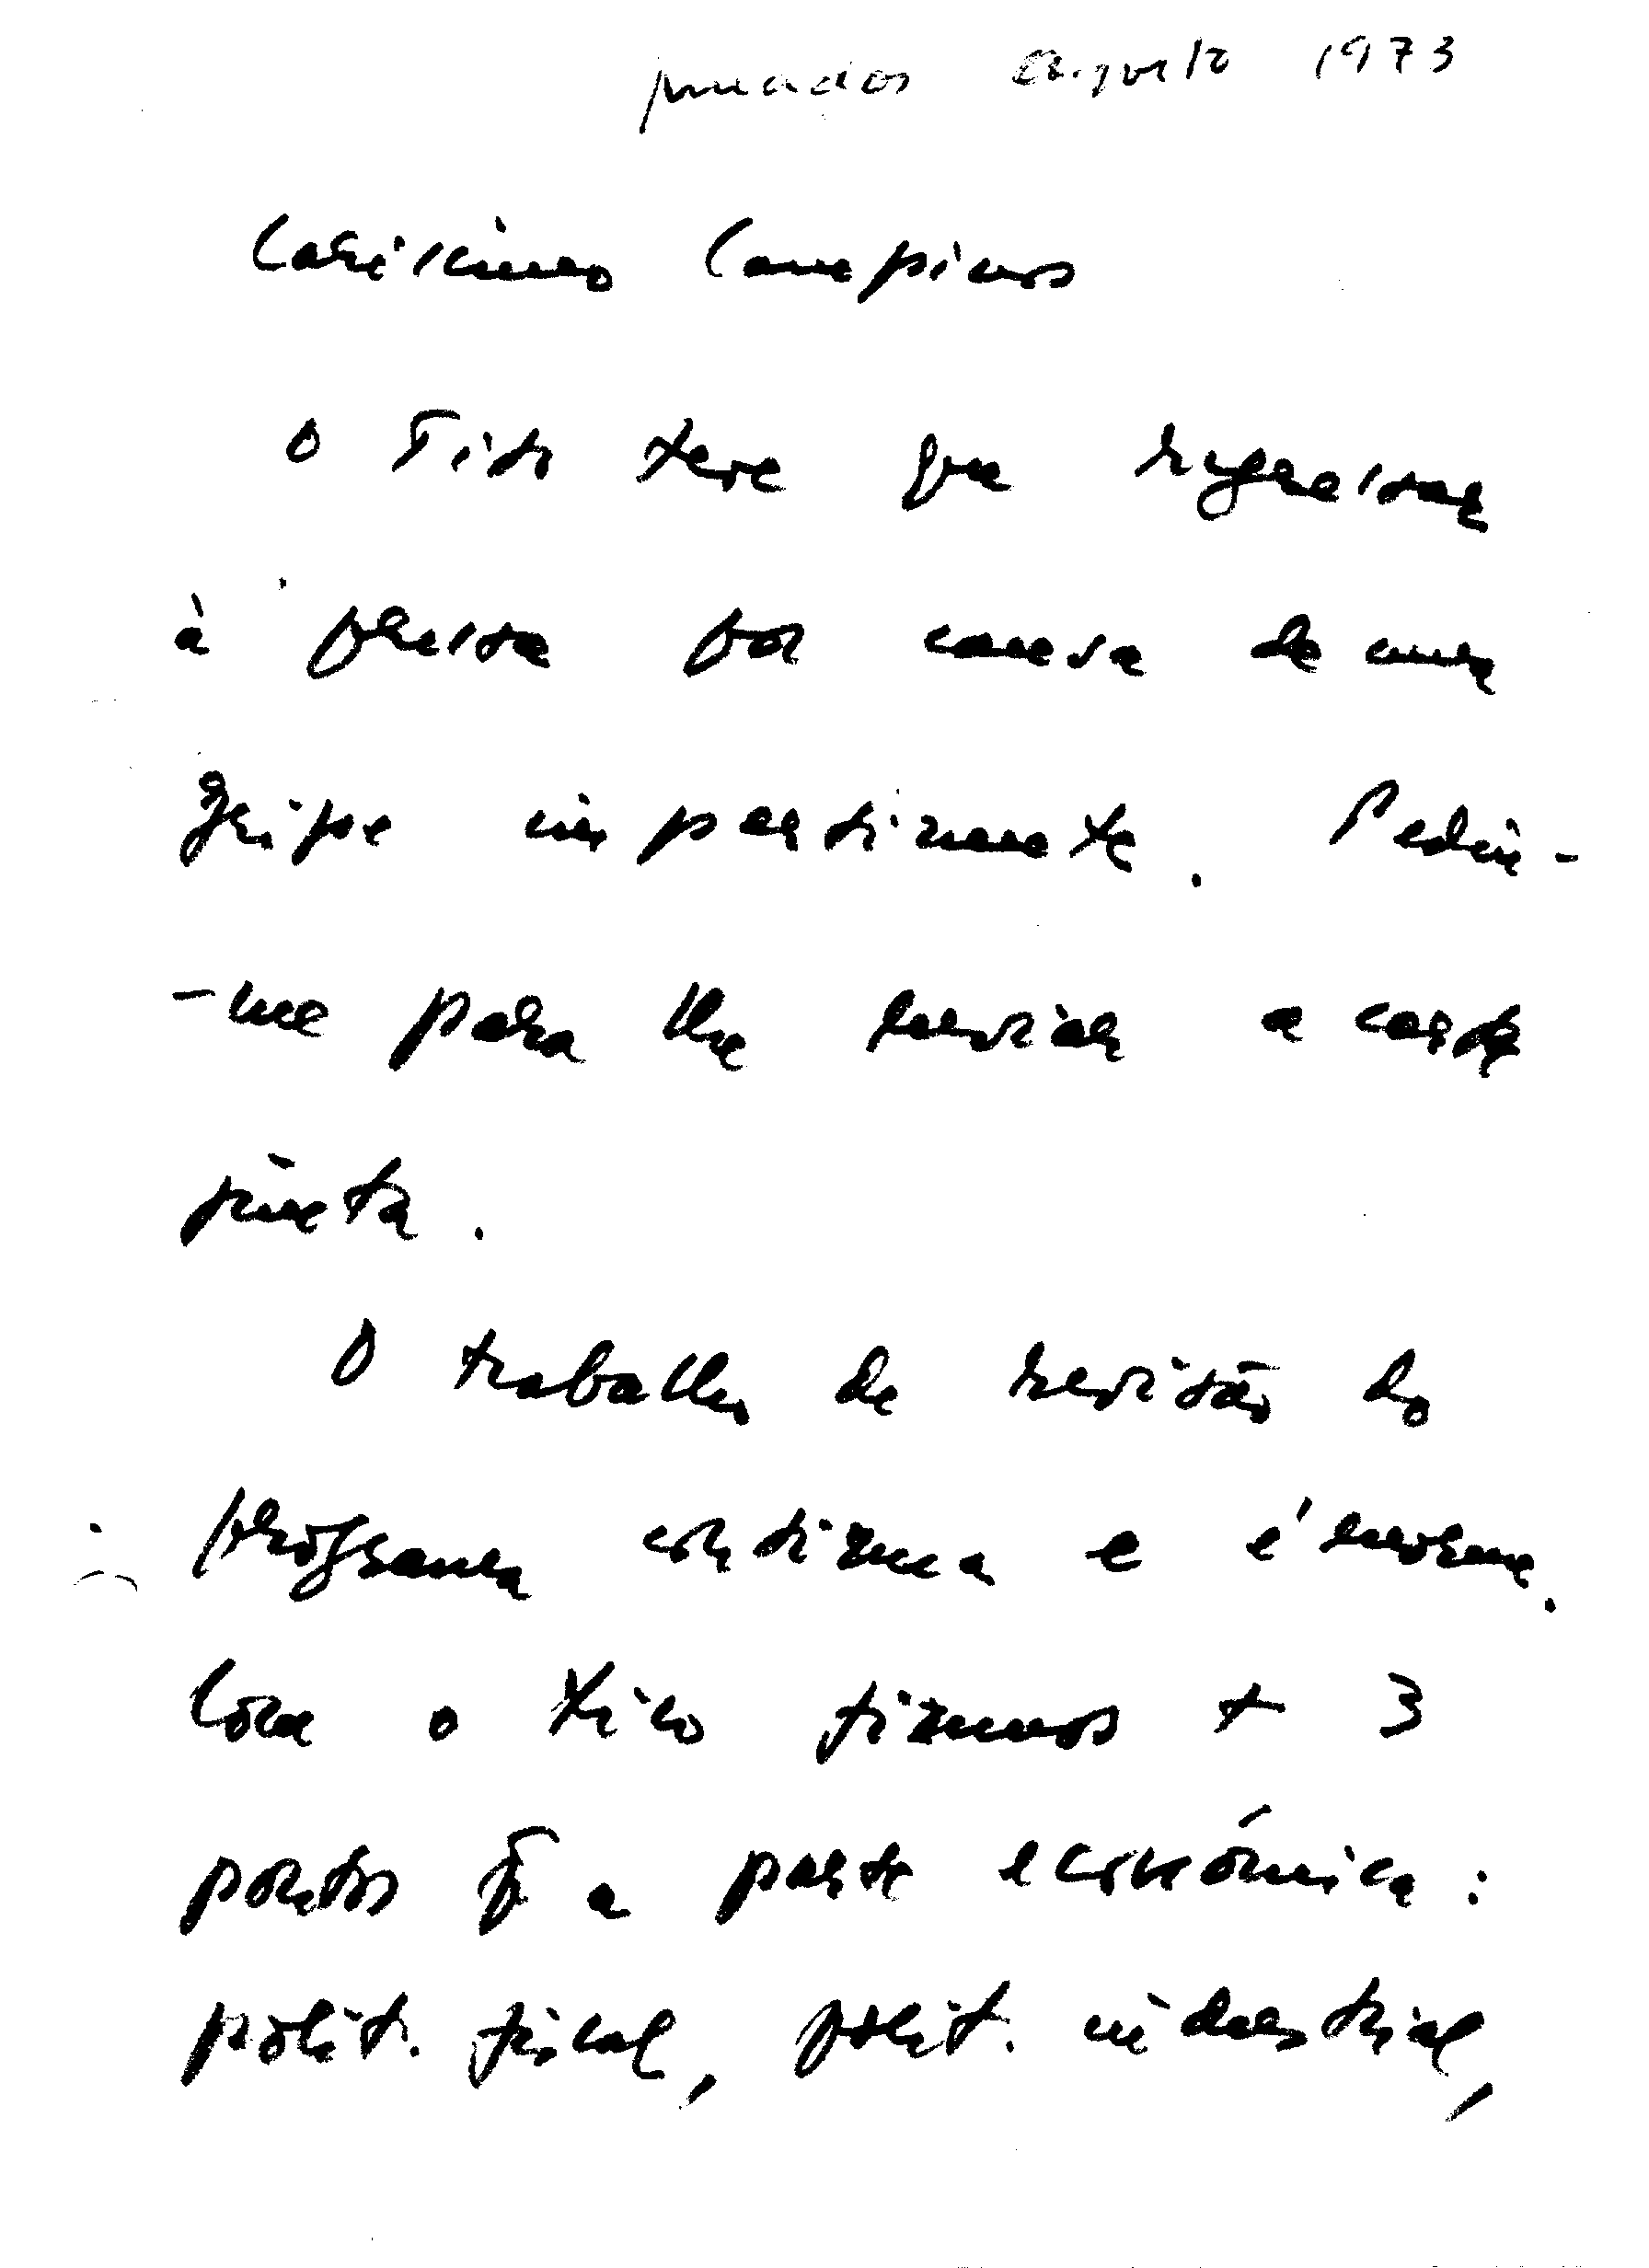 meados Agosto 1973
Caríssimo Campinos
O Tito teve que regressar
à pressa por causa de uma
gripe impertinente. Pediu-
-me para lhe enviar a carta
junta.
O trabalho de revisão do
programa continua e é enorme.
Com o Tito fizemos + 3
pontos q̃ a parte económica:
polít. fiscal, polít. industrial,